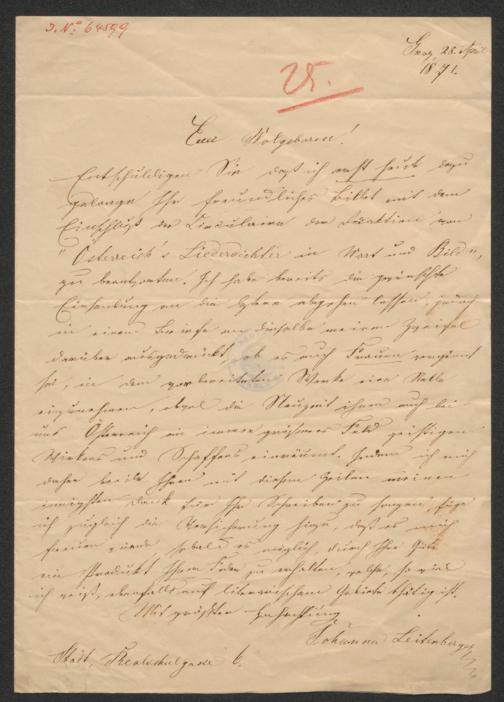 J. No 64599
Graz 28. April
1871.
Euer Wolgeboren!
Entschuldigen Sie daß ich erst heute dazu
gelange Ihr freundliches Billet mit dem
Einschluß der Circulaire der Redaktion von
"Österreich's Liederdichter in Wort und Bild",
zu beantworten. Ich habe bereits die gewünschte
Einsendung an die abgehen lassen, jedoch
in einem Briefe an dieselbe meinen Zweifel
darüber ausgedrückt, ob es auch Frauen vergönnt
sei, in dem vorbereiteten Werke eine Stelle
einzunehmen, obgl die Neuzeit ihnen auch bei
uns Österreich ein immer größeres Feld geistigen
Wirkens und Schaffens einräumt. Indem ich mich
daher beeile Ihnen mit diesen Zeilen meinen
Dank für Ihr Schreiben zu sagen, füge
ich zugleich die Versicherung hinzu, daß es mich
freuen würde, sobald es möglich, durch Ihre Güte
ein Produkt Ihrer Feder zu erhalten, welche, so viel
ich weiß, ebenfalls auf literarischem Gebiete thätig ist.
Mit größter Hochachtung
Johanna Leitenberger
Stadt, Realschulgasse 6.